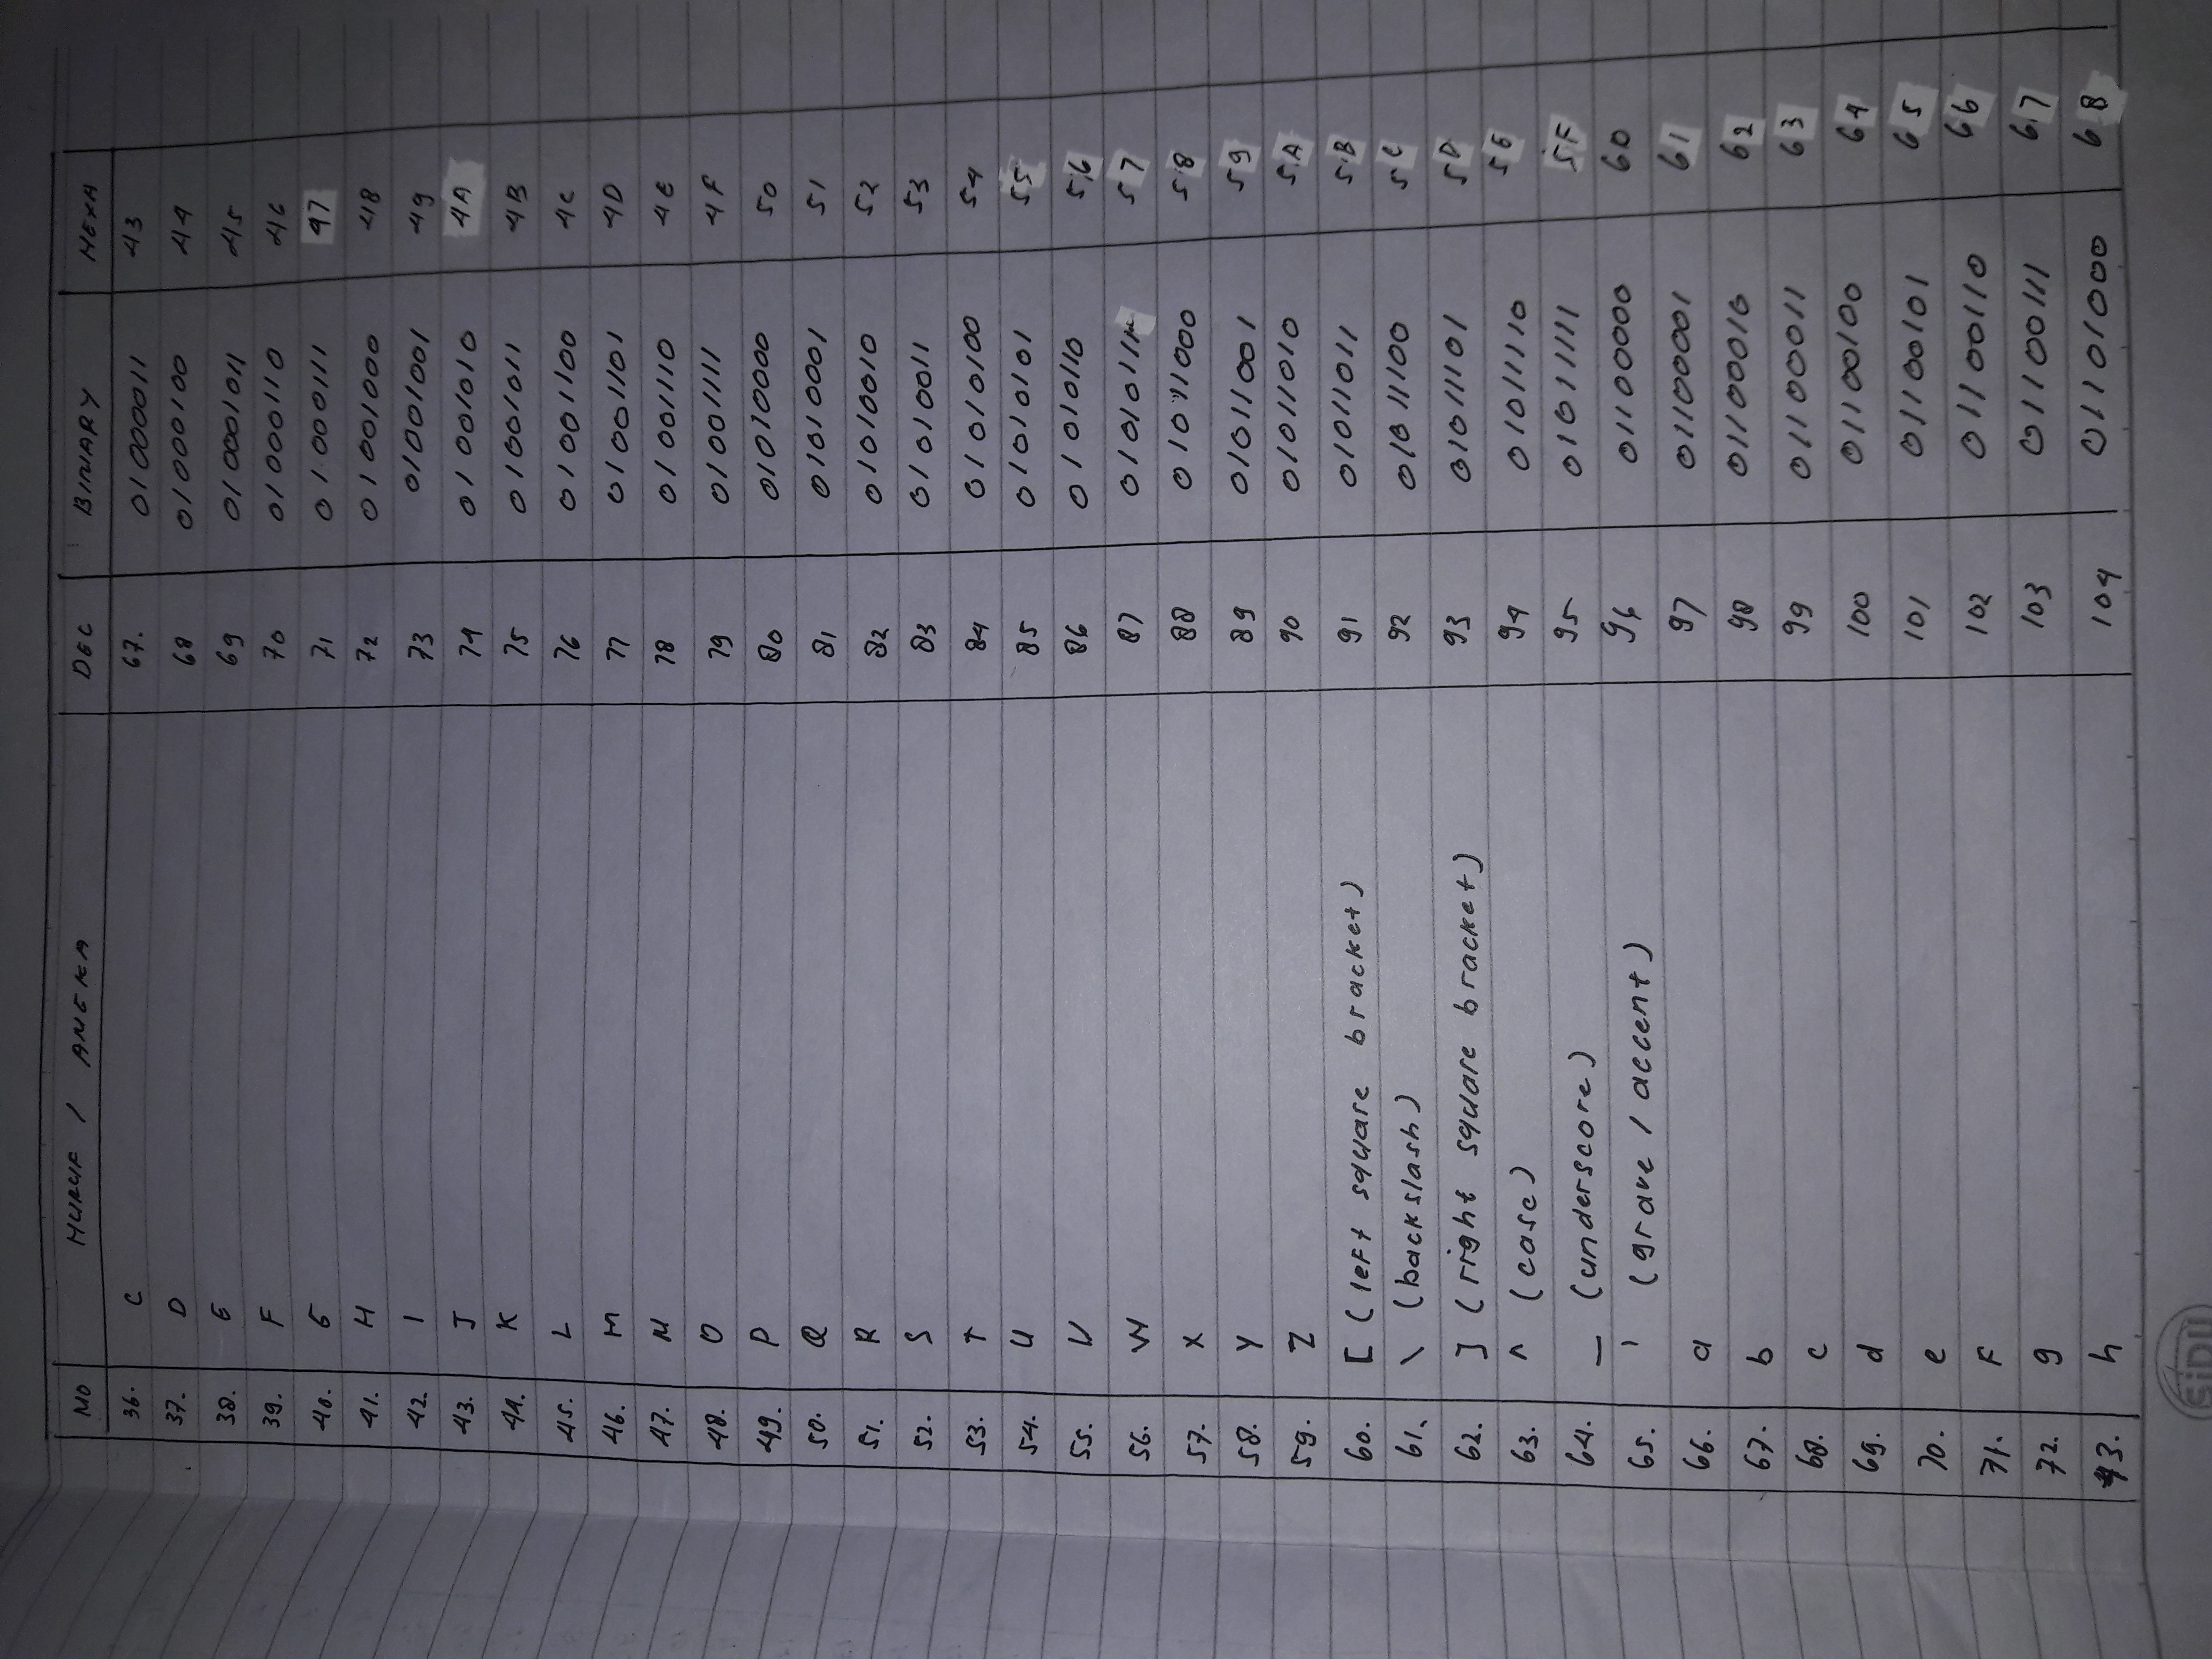 NO HURUF / ANGKA DEC BINARY HEXA
36. C 67. 01000011 43
37. D 68 01000100 44
38. E 69 010001011 45
39. F 70 01000110 46
40. G 71 01000111 47
41. H 72 01001000 48
42. I 73 01001001 49
43. J 74 01001010 4A
44. K 75 01001011 4B
45. L 76 01001100 4C
46. M 77 01001101 4D
47. N 78 01001110 4E
48. O 79 01001111 4F
49. P 80 01010000 50
50. Q 81 01010001 51
51. R 82 01010010 52
52. S 83 01010011 53
53. T 84 01010100 54
54. U 85 01010101 55
55. V 86 01010110 56
56. W 87 01010111 57
57. X 88 01011000 58
58. Y 89 01011001 59
59. Z 90 01011010 5A
60. [ (left square bracket) 91 01011011 5B
61. \ (backslash) 92 01011100 5C
62. ] (right square bracket) 93 01011101 5D
63. ^ (case) 94 01011110 5E
64. _ (underscore) 95 01011111 5F
65. ' (grave / accent) 96 01100000 60
66. a 97 01100001 61
67. b 98 01100010 62
68. c 99 01100011 63
69. d 100 01100100 64
70. e 101 01100101 65
71. F 102 01100110 66
72. g 103 01100111 67
73. h 104 01101000 68
SiDU